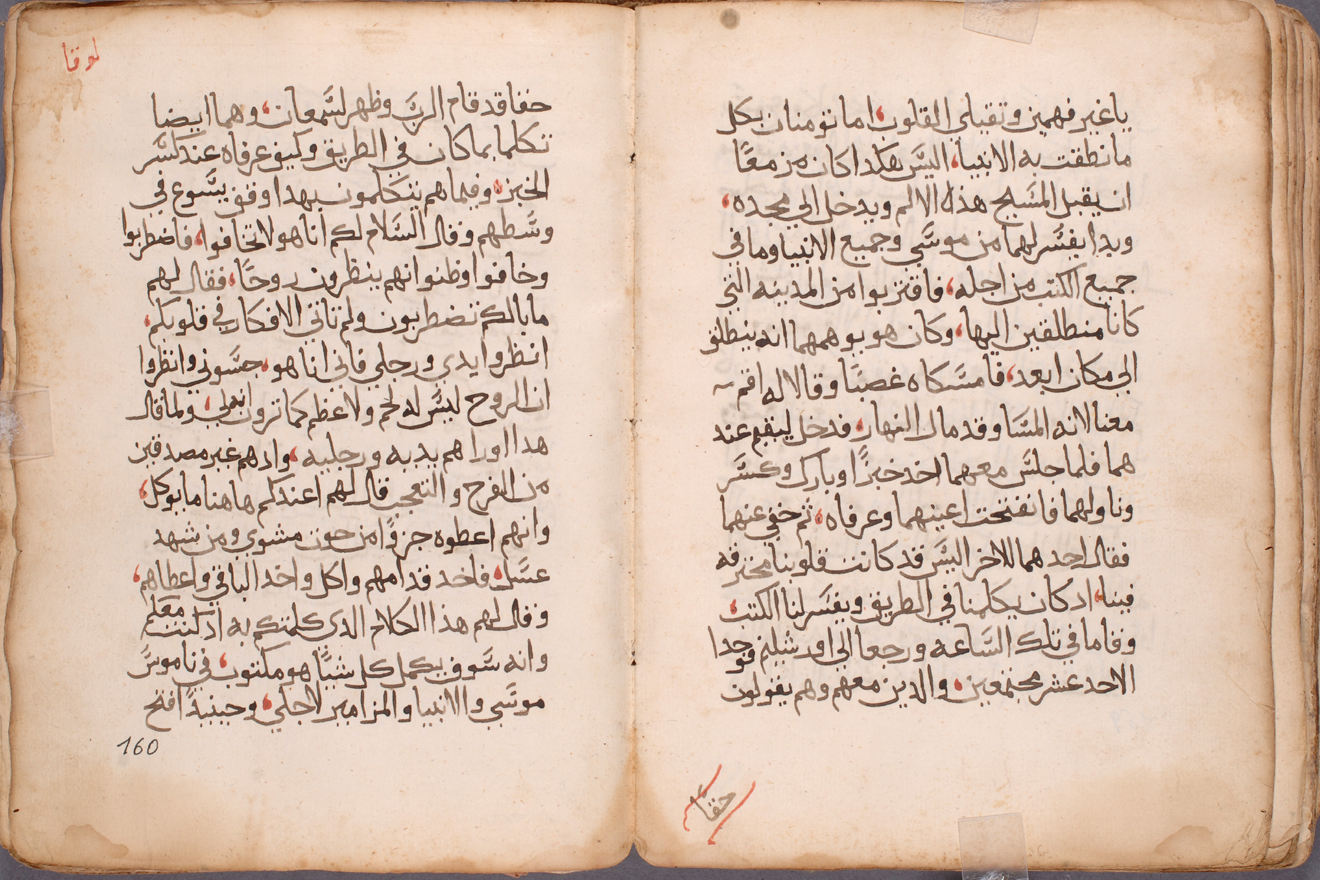 ياغير فهمين وتقيلى القلوب، اما تومنان بكل
ما نطقت به الانبيا، اليس هكدا كان مزمعًا
ان يقبل المسيح هذه الالام ويدخل الي مجده،
وبدا يفسر لهما من موسي وجميع الانبيا وما في
جميع الكتب من اجله، فاقتربوا من المدينه التي
كانا منطلقين اليها، وكان هو يوهمهما انه ينطلق
الي مكان ابعد، فامسكاه غصبًا وقالا له اقم
معنا لانه المسا وقد مال النهار، فدخل ليقيم عند
هما فلما جلس معهما اخد خبزًا وبارك وكسر
وناولهما فانفتحت اعينهما وعرفاه، ثم خفي عنهما
فقال احدهما للاخر اليس قد كانت قلوبنا محترقه
فينا، اد كان يكلمنا في الطريق ويفسر لنا الكتب،
وقاما في تلك الساعه ورجعا الى اورشليم فوجدا
الاحد عشر مجتمعين، والدين معهم وهم يقولون
حقا
لوقا
حقا قد قام الرب وظهر لسمعان، وهما ايضا
تكلما بما كان في الطريق وكيف عرفاه عند كسر
الخبز، وفيما هم يتكلمون بهدا وقف يسوع في
وسطهم وقال السلام لكم انا هو لا تخافوا، فاضطربوا
وخافوا وظنوا انهم ينظرون روحًا، فقال لهم
ما بالكم تضطربون ولم تاتي الافكار في قلوبكم،
انظروا يدي ورجلي فاني انا هو، جسوني وانظروا
ان الروح ليس له لحم ولا عظم كما ترون انه لي، ولما قال
هدا اوراهم يديه ورجليه، واد هم غير مصدقين
من الفرح والتعجب قال لهم اعندكم هاهنا ما يوكل،
وانهم اعطوه جزوًا من حوت مشوي ومن شهد
عسل، فاخد قدامهم واكل واخد الباقي واعطاهم،
وقال لهم هذا الكلام الدي كلمتكم به اد كنت معكم
وانه سوف يكمل كل شيًا هو مكتوب، في ناموس
موسي والانبيا والمزامير لاجلي، وحينيدًا افتح
160